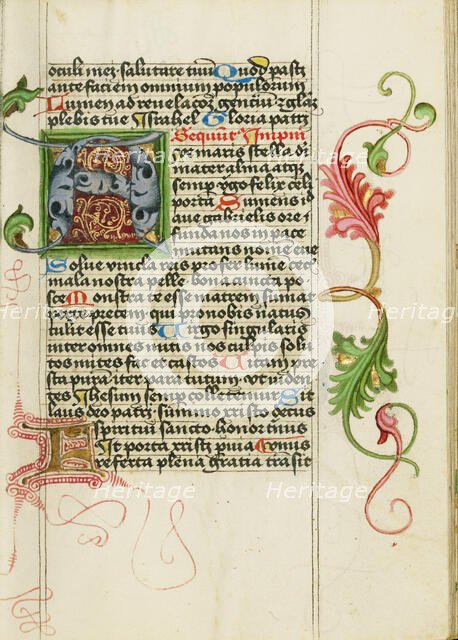 oculi mei salutare tuū Quod parasti
ante faciem omnium populorum
Lumen ad revelacōz gentiū ⁊ glāz
plebis tue Israhel Gloria patri
Sequūt Impni
A ve maris stella di
mater alma atqz
semp v̄go felix celi
porta Sumens il
ave gabrielis ore
funda nos in pace
mutans nomē eve
Solve vincla reis profer lumē cecis
mala nostra pelle bona cuncta po
sce Monstra te esse matrem sumat
per te precem qui pro nobis natus
tulit esse tuus Virgo singularis
inter omnes mitis nos culpis solu
tos mites fac et castos Vitam
presta puram iter para tutum ut viden
tes Jhesum semp colletemur Sit
laus deo patri summo xp̄isto decus
spiritui sancto honor tribus unus
Fit porta xp̄isti pvia Omnis
referta plena gratia transit
Heritage
Heritage
Heritage
Heritage
Heritage
Heritage
Heritage
Heritage